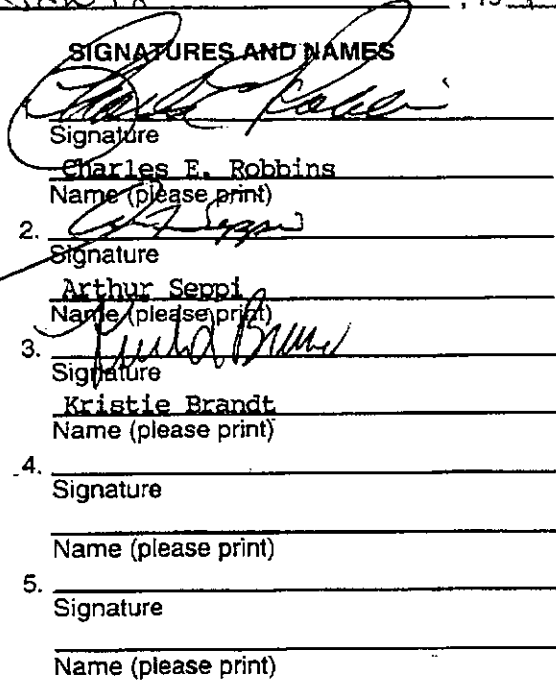 , 19
SIGNATURES AND NAMES
Signature
Charles E. Robbins
Name (please print)
2.
Signature
Arthur Seppi
Name (please print)
3.
Signature
Kristie Brandt
Name (please print)
4.
Signature
Name (please print)
5.
Signature
Name (please print)